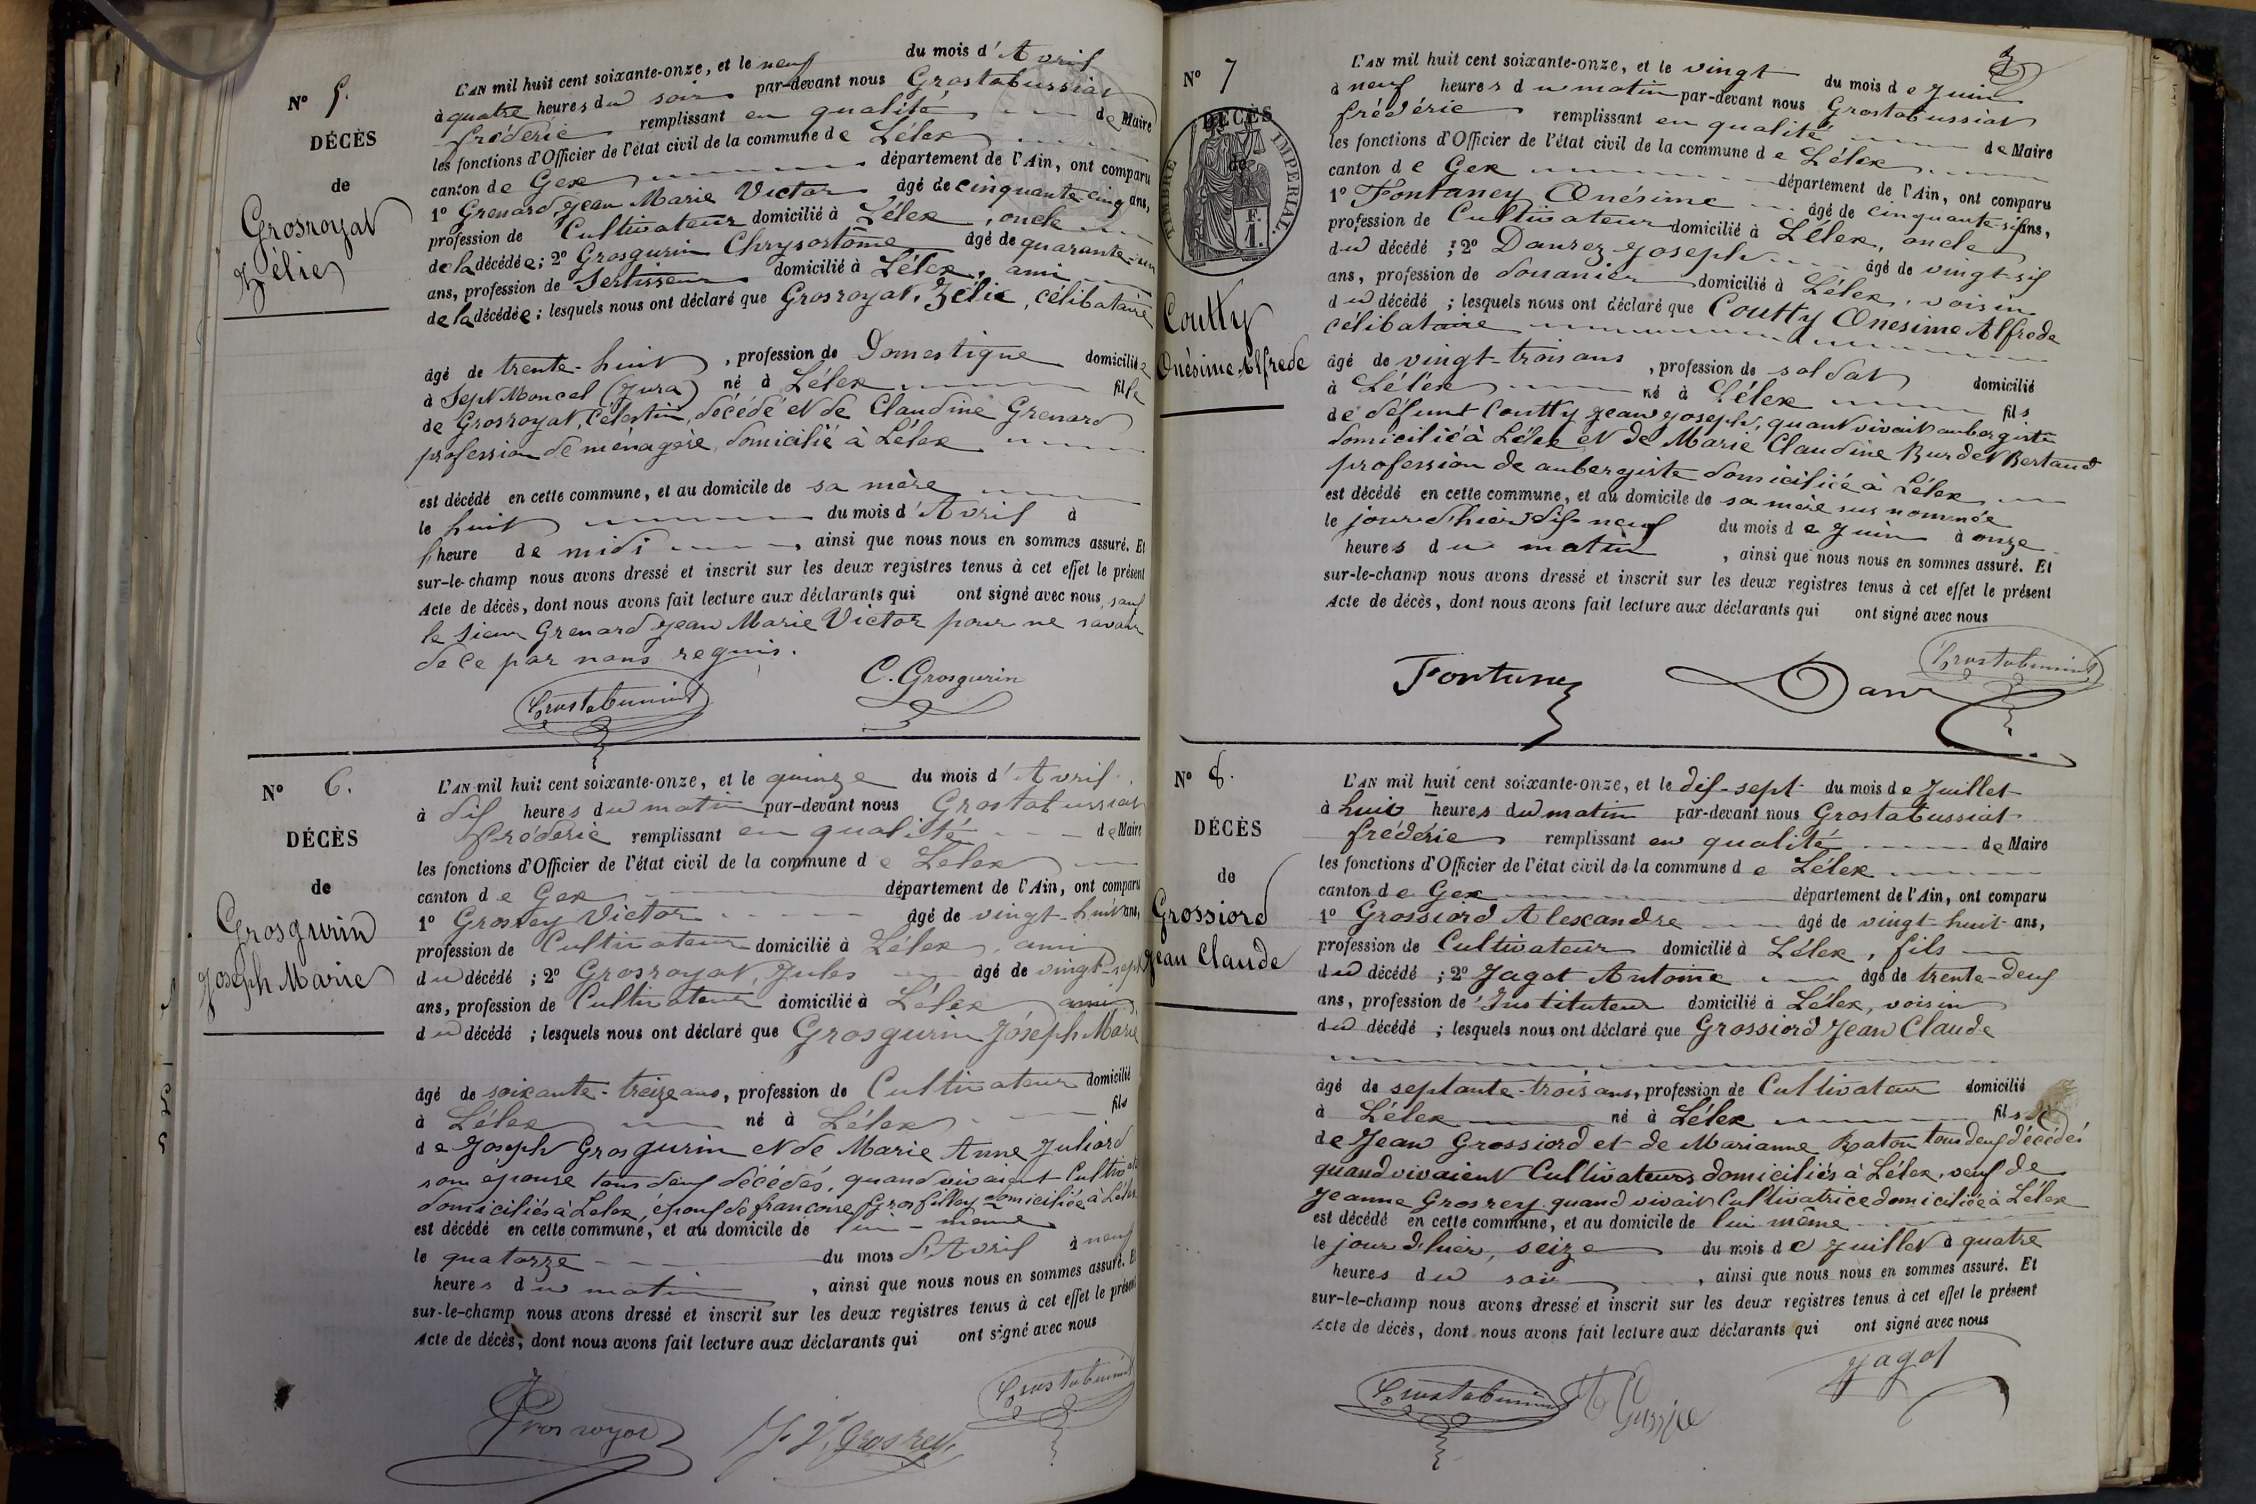 N° 5.
DÉCÈS
de
Grosroyat
Zélie
L'AN mil huit cent soixante-onze, et le neuf du mois d'Avril
à quatre heures du soir par-devant nous Grostabussiat
fréderic remplissant en qualité de Maire
les fonctions d'Officier de l'état civil de la commune de Lélex
canton de Gex département de l'Ain, ont comparu
1° Grenard, Jean Marie Victor âgé de cinquante cinq ans,
profession de Cultivateur domicilié à Lélex, oncle
de la décédée; 2° Grosgurin Chrysostôme âgé de quarante-un
ans, profession de Sertisseur domicilié à Lélex, ami
de la décédée; lesquels nous ont déclaré que Grosroyat, Zélie, célibataire
âgé de trente-huit, profession de Domestique domicilié
à Sept Moncel (Jura) né à Lélex fille
de Grosroyat, Célestin, décédé et de Claudine Grenard
profession de ménagère, domicilié à Lélex
est décédé en cette commune, et au domicile de sa mère
le huit du mois d'Avril à
l'heure de midi, ainsi que nous nous en sommes assuré. Et
sur-le-champ nous avons dressé et inscrit sur les deux registres tenus à cet effet le présent
Acte de décès, dont nous avons fait lecture aux déclarants qui ont signé avec nous, sauf
le sieur Grenard Jean Marie Victor pour ne savoir
de ce par nous requis.
Grostabussiat
C. Grosgurin
N° 6.
DÉCÈS
de
Grosgurin
Joseph Marie
L'AN mil huit cent soixante-onze, et le quinze du mois d'Avril
à dix heures du matin par-devant nous Grostabussiat
fréderic remplissant en qualité de Maire
les fonctions d'Officier de l'état civil de la commune de Lélex
canton de Gex département de l'Ain, ont comparu
1° Grosrey Victor âgé de vingt-huit ans,
profession de Cultivateur domicilié à Lélex, ami
du décédé; 2° Grosroyat, Jules âgé de vingt-sept
ans, profession de Cultivateur domicilié à Lélex ami
du décédé; lesquels nous ont déclaré que Grosgurin Joseph Marie
âgé de soixante-treize ans, profession de Cultivateur domicilié
à Lélex né à Lélex fils
de Joseph Grosgurin et de Marie Anne Juliard
son épouse tous deux décédés, quand vivaient Cultivat
domiciliés à Lélex, époux de françoise Grosfilley domiciliée à Lélex
est décédé en cette commune, et au domicile de lui-même
le quatorze du mois d'Avril à neuf
heures du matin, ainsi que nous nous en sommes assuré. Et
sur-le-champ nous avons dressé et inscrit sur les deux registres tenus à cet effet le présent
Acte de décès, dont nous avons fait lecture aux déclarants qui ont signé avec nous
Grostabussiat
Grosroyat
J. V. Grosrey
N° 7
DÉCÈS
de
TIMBRE IMPÉRIAL.
F.
1.
Coutty
Onésime Alfrede
L'AN mil huit cent soixante-onze, et le vingt du mois de Juin
à neuf heures du matin par-devant nous Grostabussiat
frédéric remplissant en qualité de Maire
les fonctions d'Officier de l'état civil de la commune de Lélex
canton de Gex département de l'Ain, ont comparu
1° Fontaney Onésime âgé de cinquante-six ans,
profession de Cultivateur domicilié à Lélex, oncle
du décédé; 2° Danrez Joseph âgé de vingt-six
ans, profession de douanier domicilié à Lélex, voisin
du décédé; lesquels nous ont déclaré que Coutty Onesime Alfrede
célibataire
âgé de vingt-trois ans, profession de soldat domicilié
à Lélex né à Lélex fils
de défunt Coutty Jean Joseph, quant vivait aubergiste
domicilié à Lélex et de Marie Claudine Burdet Bertaud
profession de aubergiste domiciliée à Lélex
est décédé en cette commune, et au domicile de sa mère sus nommée
le jour d'hier dix-neuf du mois de Juin à onze
heures du matin, ainsi que nous nous en sommes assuré. Et
sur-le-champ nous avons dressé et inscrit sur les deux registres tenus à cet effet le présent
Acte de décès, dont nous avons fait lecture aux déclarants qui ont signé avec nous
Grostabussiat
Fontaney
Danr
N° 8.
DÉCÈS
de
Grossiord
Jean Claude
L'AN mil huit cent soixante-onze, et le dix-sept du mois de Juillet
à huit heures du matin par-devant nous Grostabussiat
fréderic remplissant en qualité de Maire
les fonctions d'Officier de l'état civil de la commune de Lélex
canton de Gex département de l'Ain, ont comparu
1° Grossiord Alexandre âgé de vingt-huit ans,
profession de Cultivateur domicilié à Lélex, fils
du décédé; 2° Jagot Antoine âgé de trente-deux
ans, profession de Instituteur domicilié à Lélex, voisin
du décédé; lesquels nous ont déclaré que Grossiord Jean Claude
âgé de septante-trois ans, profession de Cultivateur domicilié
à Lélex né à Lélex fils
de Jean Grossiord et de Marianne Raton tous deux décédés
quand vivaient Cultivateurs domiciliés à Lélex, veuf de
Jeanne Grosrey quand vivait Cultivatrice domiciliée à Lélex
est décédé en cette commune, et au domicile de lui même
le jour d'hier, seize du mois de Juillet à quatre
heures du soir, ainsi que nous nous en sommes assuré. Et
sur-le-champ nous avons dressé et inscrit sur les deux registres tenus à cet effet le présent
Acte de décès, dont nous avons fait lecture aux déclarants qui ont signé avec nous
Jagot
Grostabussiat